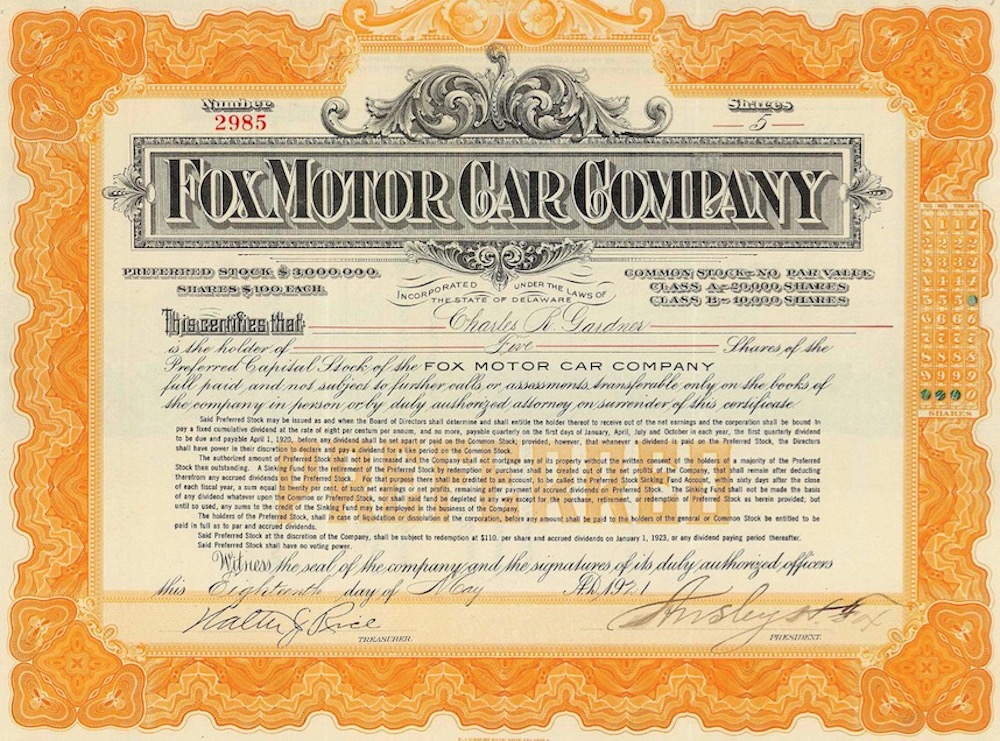 Number
2985
Shares
5
FOX MOTOR CAR COMPANY
PREFERRED STOCK $3,000,000.
SHARES $100. EACH.
INCORPORATED UNDER THE LAWS OF
THE STATE OF DELAWARE
COMMON STOCK-NO PAR VALUE
CLASS A-20,000 SHARES
CLASS B-10,000 SHARES
This certifies that Charles R. Gardner
is the holder of Five Shares of the
Preferred Capital Stock of the FOX MOTOR CAR COMPANY
full paid and not subject to further calls or assessments, transferable only on the books of
the company in person or by duly authorized attorney on surrender of this certificate.
Said Preferred Stock may be issued as and when the Board of Directors shall determine and shall entitle the holder thereof to receive out of the net earnings and the corporation shall be bound to
pay a fixed cumulative dividend at the rate of eight per centum per annum, and no more, payable quarterly on the first days of January, April, July and October in each year, the first quarterly dividend
to be due and payable April 1, 1920, before any dividend shall be set apart or paid on the Common Stock; provided, however, that whenever a dividend is paid on the Preferred Stock, the Directors
shall have power in their discretion to declare and pay a dividend for a like period on the Common Stock.
The authorized amount of Preferred Stock shall not be increased and the Company shall not mortgage any of its property without the written consent of the holders of a majority of the Preferred
Stock then outstanding. A Sinking Fund for the retirement of the Preferred Stock by redemption or purchase shall be created out of the net profits of the Company, that shall remain after deducting
therefrom any accrued dividends on the Preferred Stock. For that purpose there shall be credited to an account, to be called the Preferred Stock Sinking Fund Account, within sixty days after the close
of each fiscal year, a sum equal to twenty per cent. of such net earnings or net profits, remaining after payment of accrued dividends on Preferred Stock. The Sinking Fund shall not be made the basis
of any dividend whatever upon the Common or Preferred Stock, nor shall said fund be depleted in any way except for the purchase, retirement, or redemption of Preferred Stock as herein provided; but
until so used, any sums to the credit of the Sinking Fund may be employed in the business of the Company.
The holders of the Preferred Stock, shall in case of liquidation or dissolution of the corporation, before any amount shall be paid to the holders of the general or Common Stock be entitled to be
paid in full as to par and accrued dividends.
Said Preferred Stock at the discretion of the Company, shall be subject to redemption at $110. per share and accrued dividends on January 1, 1923, or any dividend paying period thereafter.
Said Preferred Stock shall have no voting power.
Witness the seal of the company and the signatures of its duly authorized officers
this Eighteenth day of May A.D. 1921
Walter J. Rice
TREASURER.
Ansley H. Fox
PRESIDENT.
SHARES